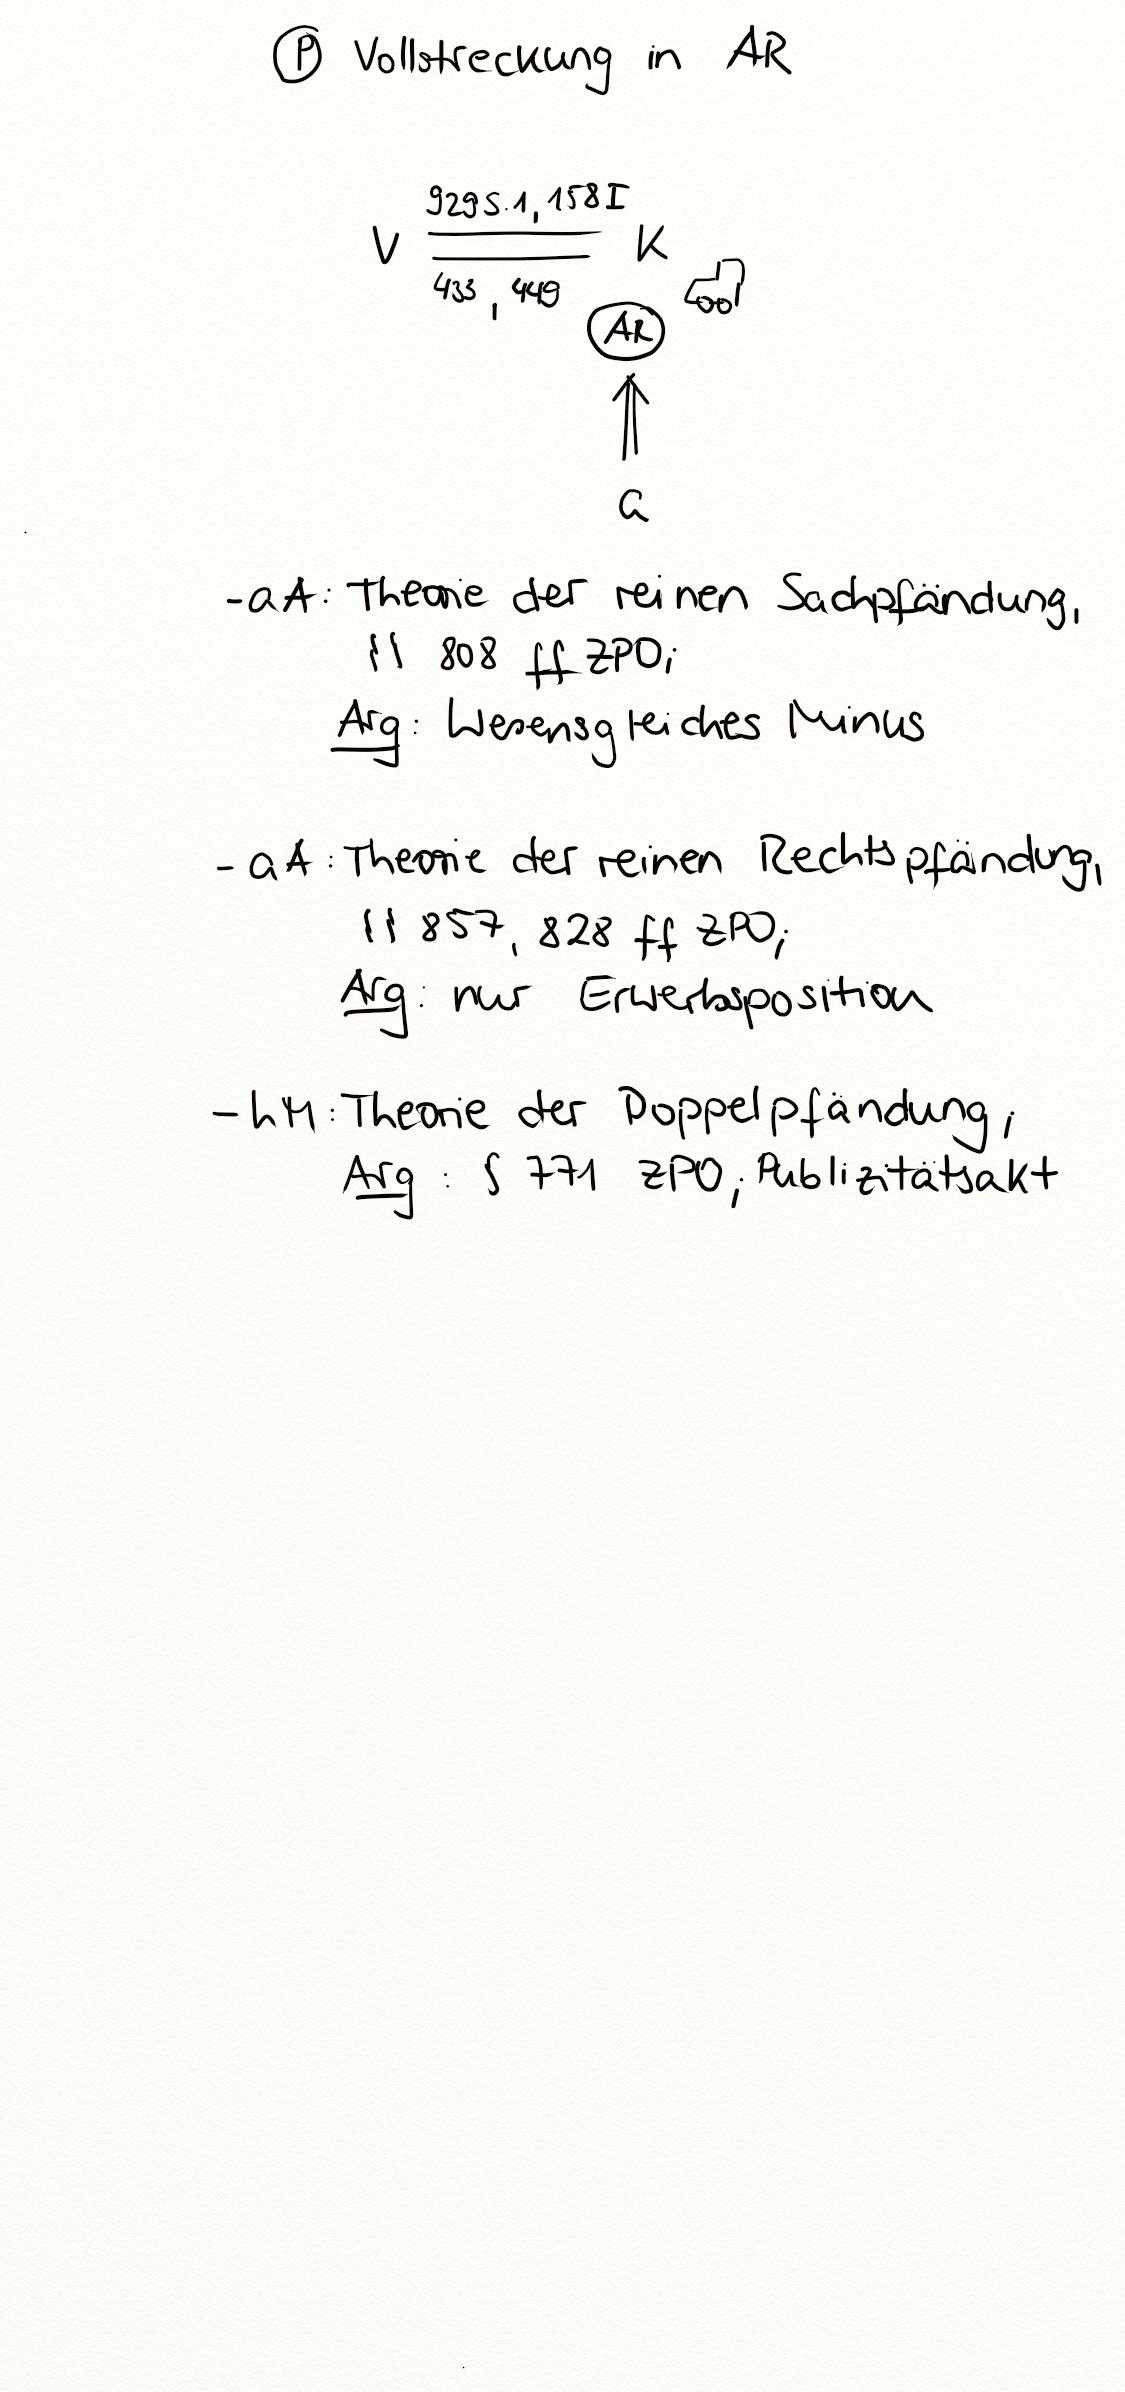 Ⓟ Vollstreckung in AR
929 S. 1, 158 I
V K
433, 449
AR
G
- aA: Theorie der reinen Sachpfändung,
§§ 808 ff ZPO;
Arg: Wesensgleiches Minus
- aA: Theorie der reinen Rechtspfändung,
§§ 857, 828 ff ZPO;
Arg: nur Erwerbsposition
- hM: Theorie der Doppelpfändung;
Arg: § 771 ZPO; Publizitätsakt